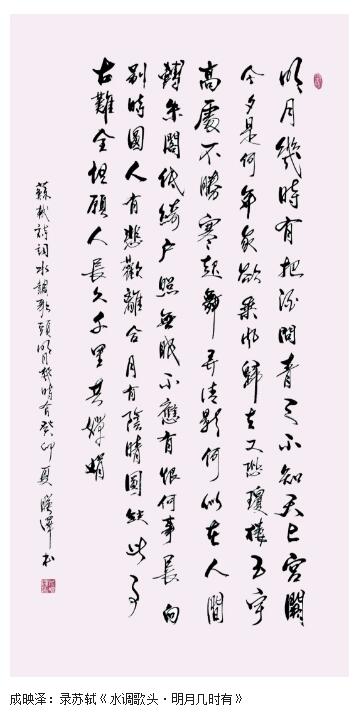 明月幾時有把酒問青天不知天上宮闕
今夕是何年我欲乘風歸去又恐瓊樓玉宇
高處不勝寒起舞弄清影何似在人間
轉朱閣低綺戶照無眠不應有恨何事長向
別時圓人有悲歡離合月有陰晴圓缺此事
古難全但願人長久千里共嬋娟
蘇軾詩詞水調歌頭明月幾時有癸卯夏映澤書
成映泽：录苏轼《水调歌头·明月几时有》